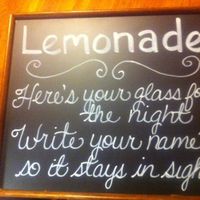 Lemonade
Here's your glass fo
the night
Write your name
so it stays in sigh